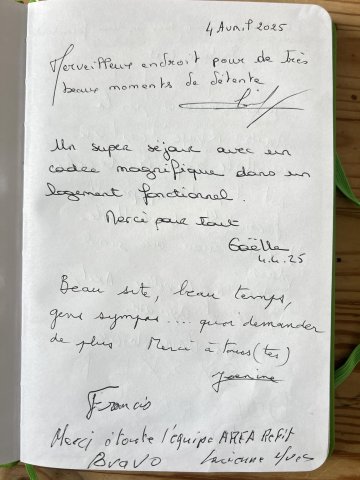 4 Avril 2025
Merveilleux endroit pour de très
beaux moments de détente
Un super séjour avec un
cadre magnifique dans un
logement fonctionnel.
Merci pour tout
Gaëlle
4.4.25
Beau site, beau temps,
gens sympas .... quoi demander
de plus Merci à tous(tes)
Janine
Francis
Merci à toute l'équipe AREA
Bravo Lucienne Yves